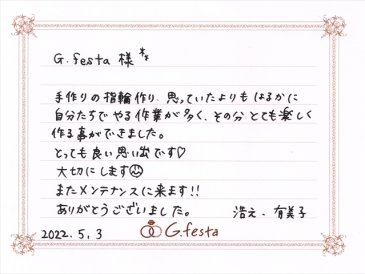 G.festa 様
手作りの指輪作り、思っていたよりもはるかに
自分たちでやる作業が多く、その分とても楽しく
作る事ができました。
とっても良い思い出です♡
大切にします☺
またメンテナンスに来ます!!
ありがとうございました。 浩え・有美子
2022.5.3 G.festa